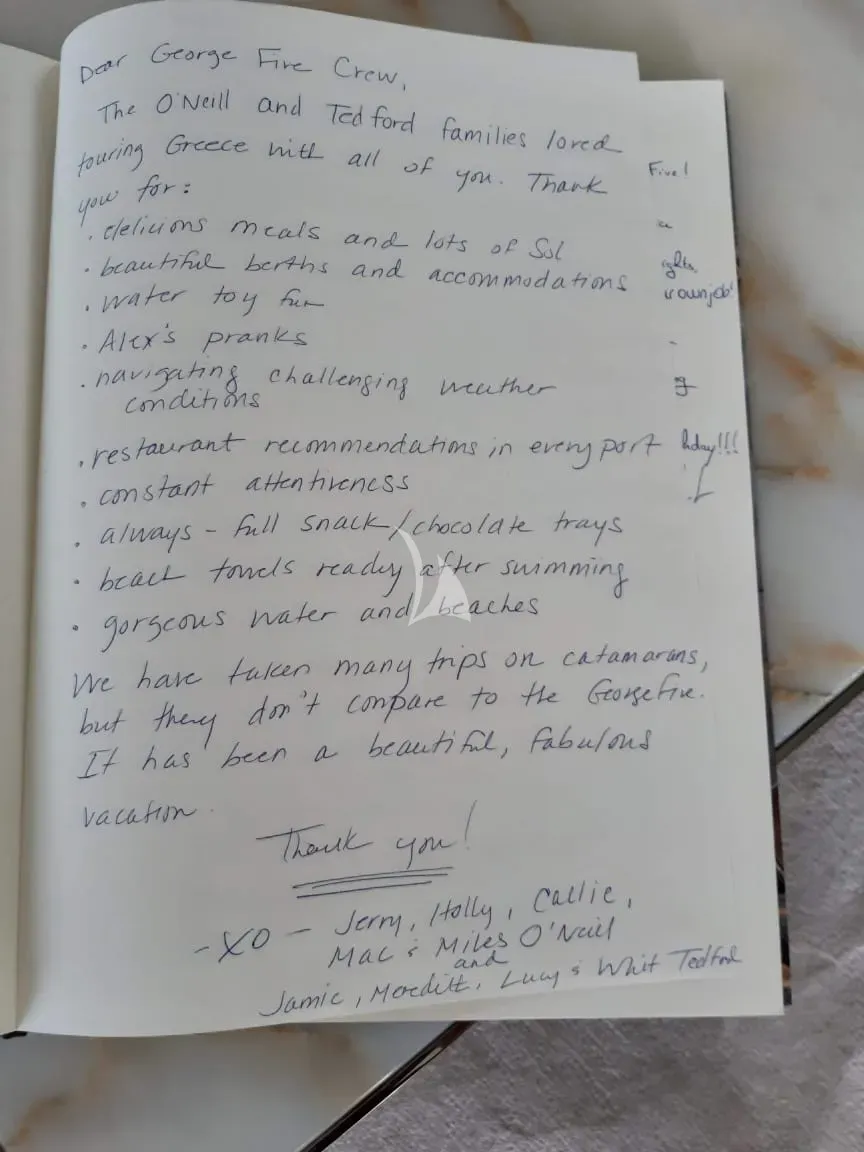 Dear George Five Crew,
The O'Neill and Tedford families loved
touring Greece with all of you. Thank
you for:
. delicious meals and lots of
. beautiful berths and accommodations
. water toy fun
. Alex's pranks
. navigating challenging weather
conditions
. restaurant recommendations in every port
. constant attentiveness
. always - full snack/chocolate trays
. beach towels ready after swimming
. gorgeous water and beaches
We have taken many trips on catamarans,
but they don't compare to the George Five.
It has been a beautiful, fabulous
vacation.
Thank you!
- XO - Jerry, Holly, Callie,
Mac & Miles O'Neill
and
Jamie, Meredith, Lucy & Whit Tedford
Five!